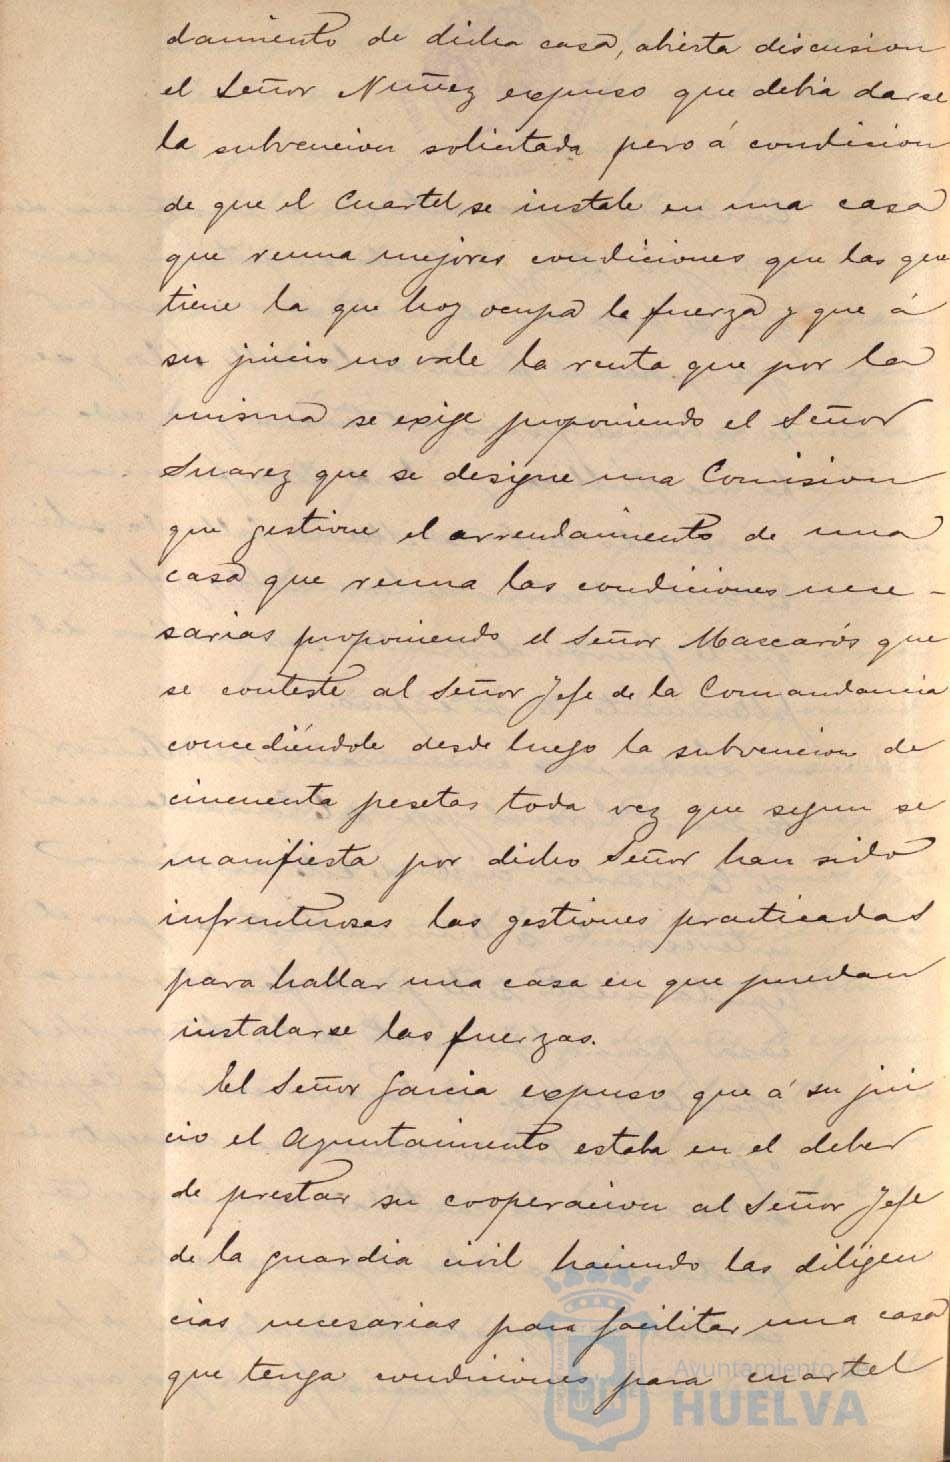 damiento de dicha casa, abierta discusion
el Señor Nuñez expuso que debia darse
la subvencion solicitada pero á condicion
de que el Cuartel se instale en una casa
que reuna mejores condiciones que las que
tiene la que hoy ocupa la fuerza y que á
su juicio no vale la renta que por la
misma se exige proponiendo el Señor
Suarez que se designe una Comision
que gestione el arrendamiento de una
casa que reuna las condiciones nece-
sarias proponiendo el Señor Mascarós que
se conteste al Señor Jefe de la Comandancia
concediéndole desde luego la subvencion de
cincuenta pesetas toda vez que segun se
manifiesta por dicho Señor han sido
infrutuosas las gestiones practicadas
para hallar una casa en que puedan
instalarse las fuerzas.
El Señor Garcia expuso que á su jui
cio el Ayuntamiento estaba en el deber
de prestar su cooperacion al Señor Jefe
de la guardia civil haciendo las diligen
cias necesarias para facilitar una casa
que tenga condiciones para cuartel
Ayuntamiento de
HUELVA